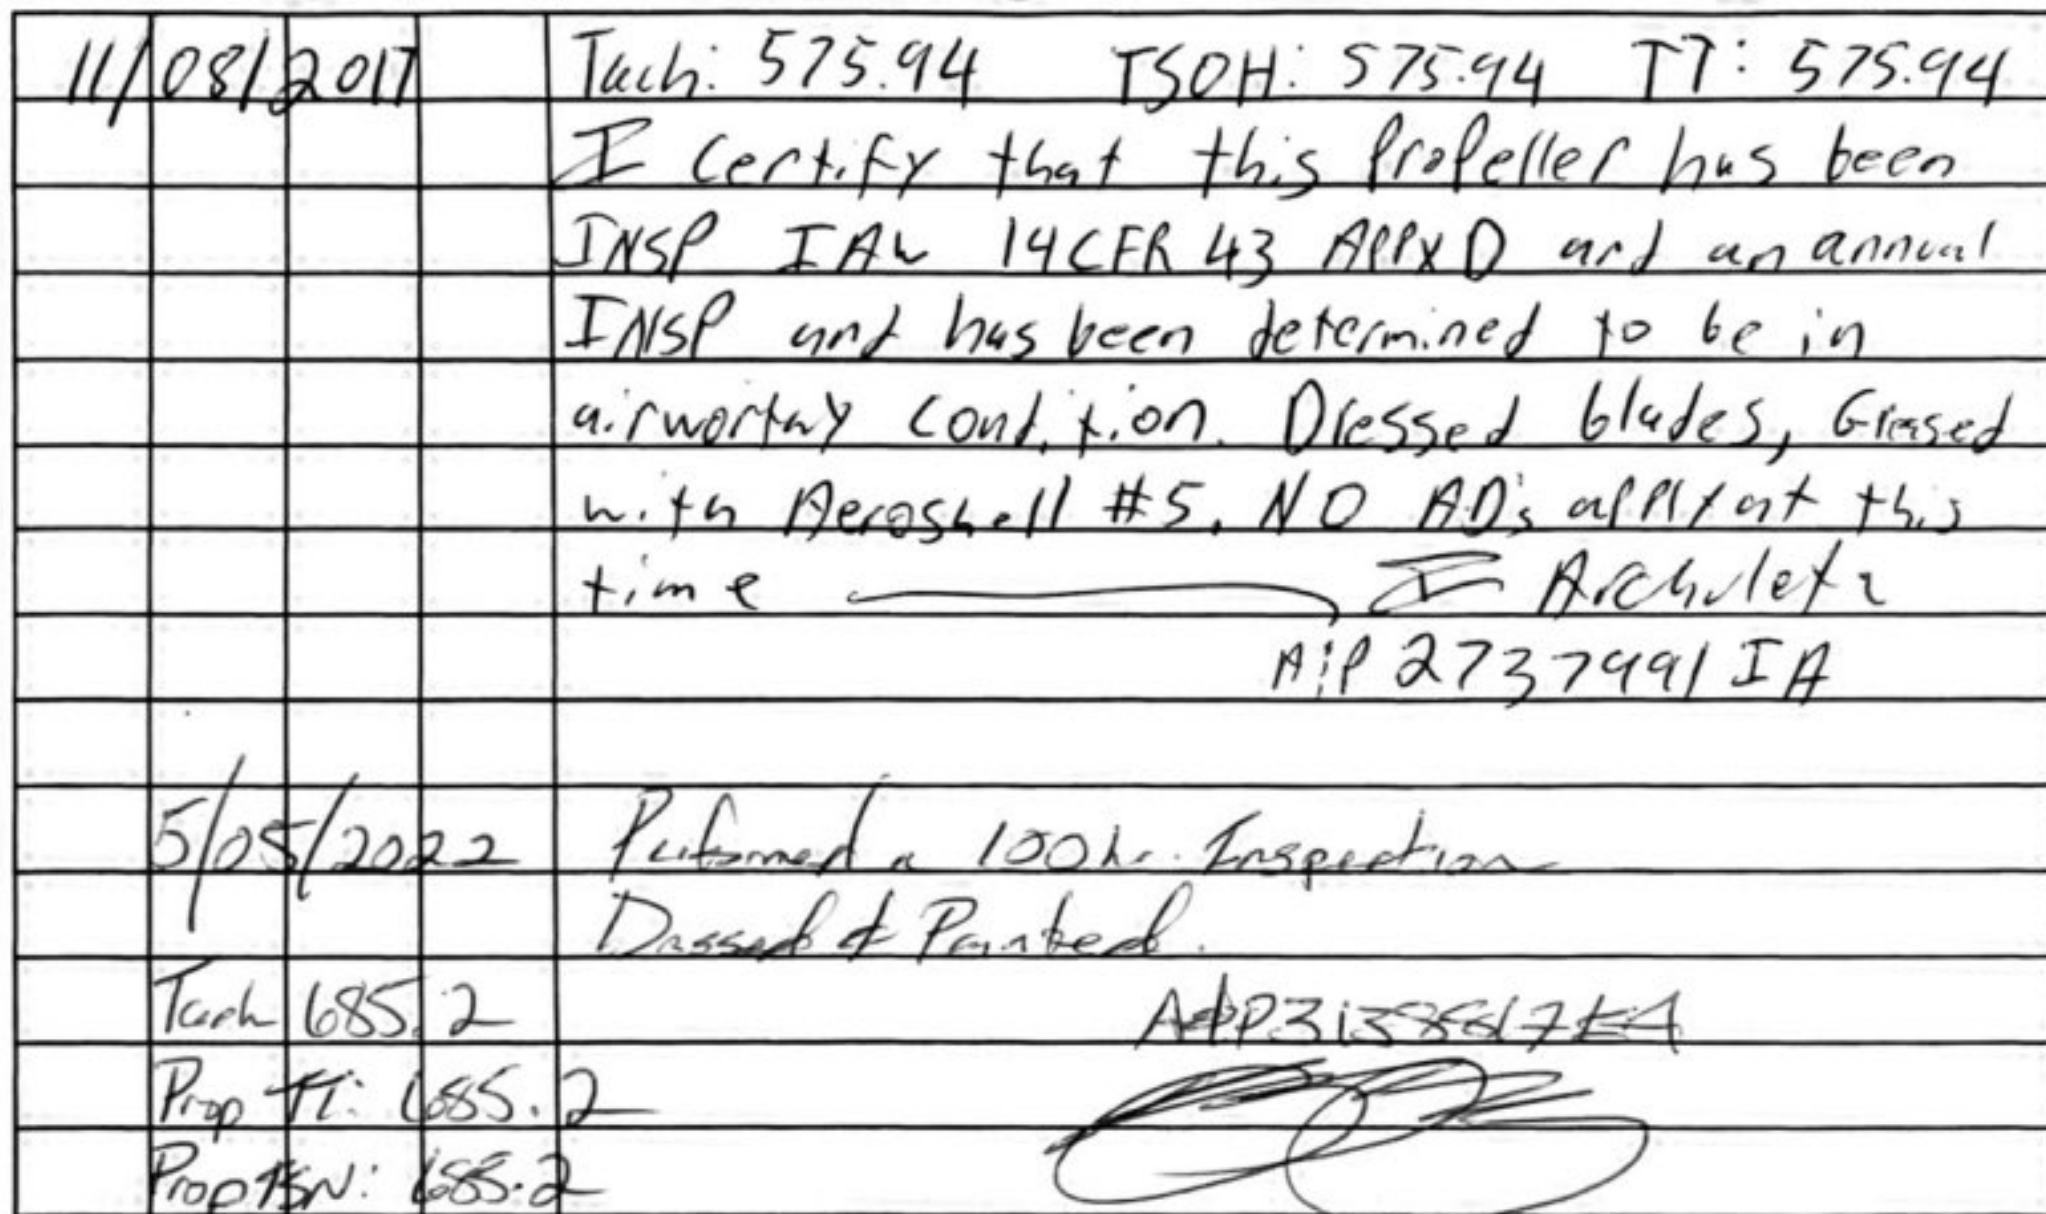 11/08/2017 Tach: 575.94 TSOH: 575.94 TT: 575.94
I certify that this Propeller has been
INSP IAW 14CFR 43 APPX D and an annual
INSP and has been determined to be in
airworthy condition. Dressed blades, Greased
with Aeroshell #5. NO AD's apply at this
time I Archuleta
A&P 2737991 IA
5/05/2022 Performed a 100hr. Inspection
Dressed & Painted.
Tach 685.2
Prop TT: 685.2
Prop TSN: 685.2